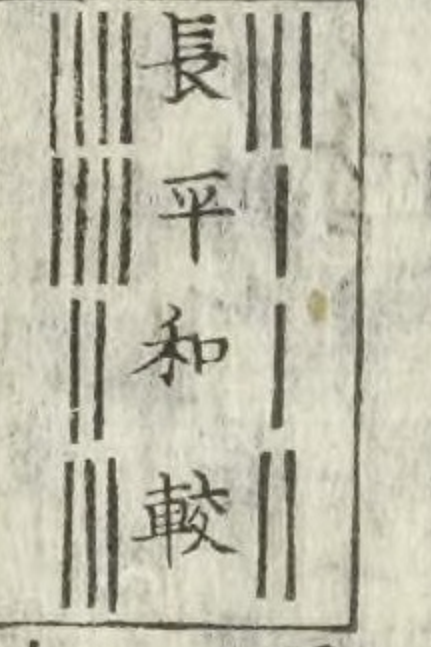 長平和較